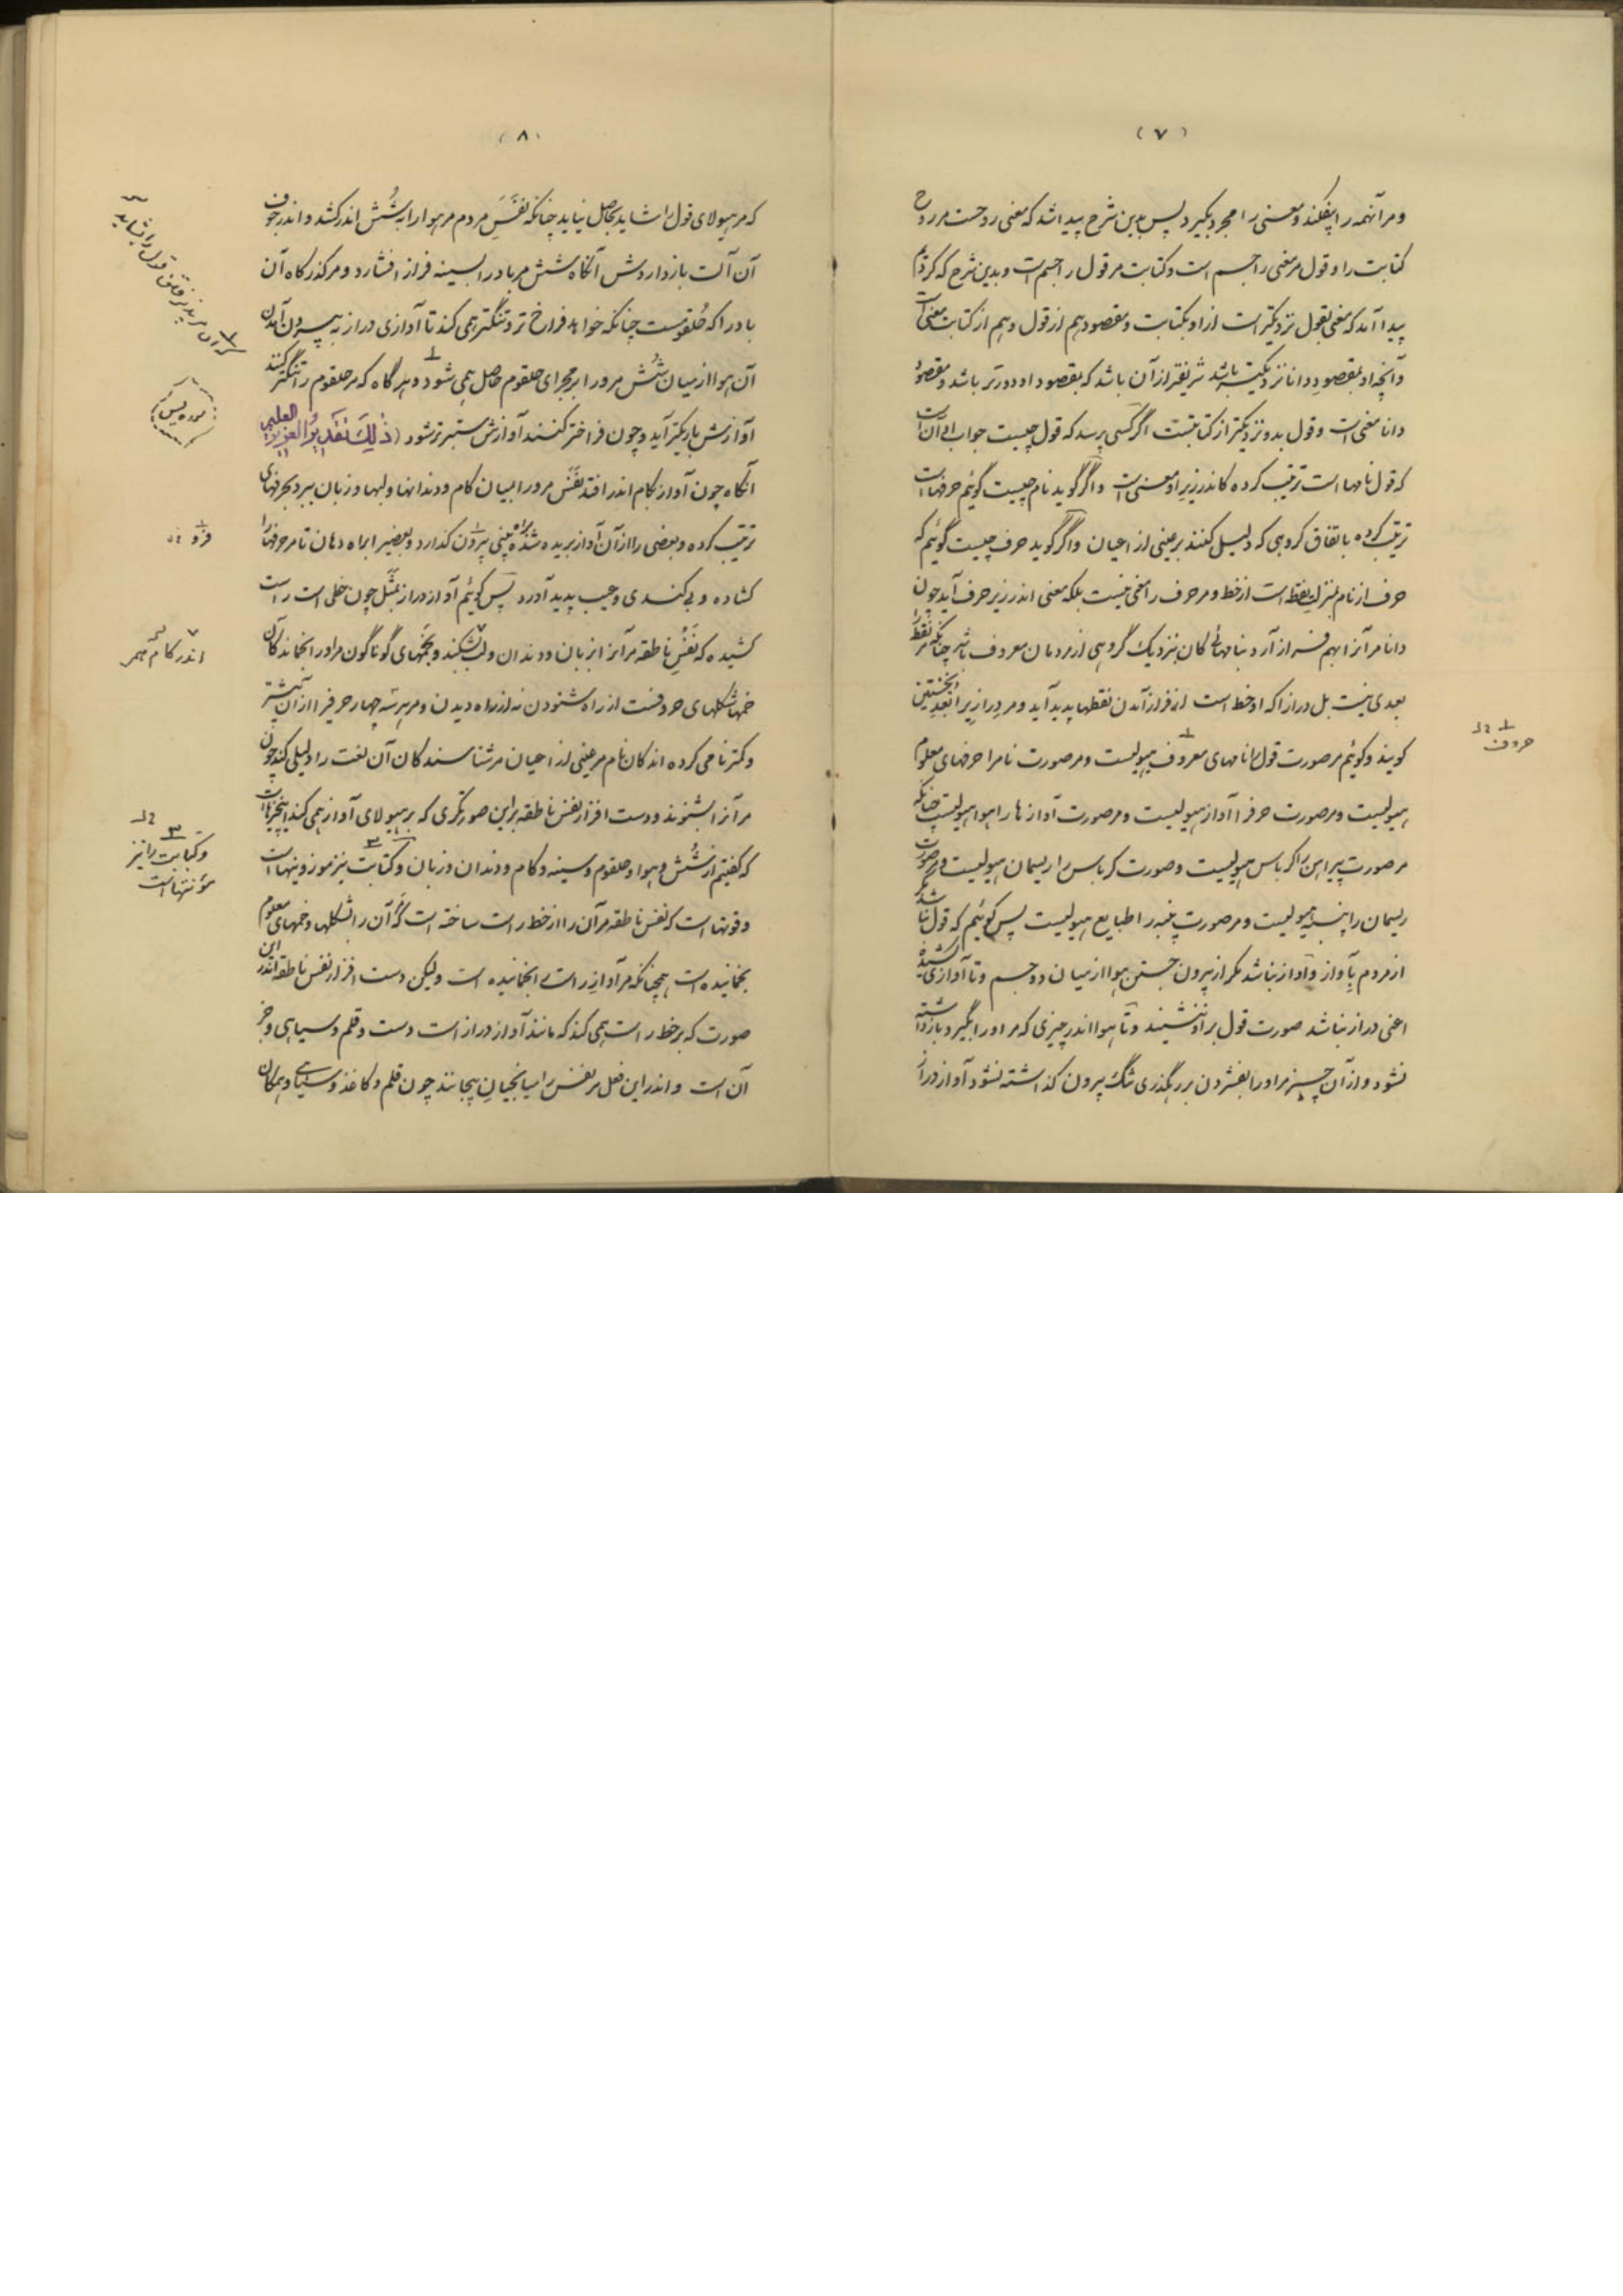 (۷)
و مر آنهمه را بیفکند و معنی را مجرد بگیرد پس بدین شرح پیدا شد که معنی روحست مر روح
کتابت را و قول مر معنی را جسم است و کتابت مر قول را جسم است و بدین شرح که کردیم
پیدا آمد که معنی بقول نزدیکتر است از او بکتابت و مقصود هم از قول و هم از کتابت معنی است
و آنچه او بمقصود دانا نزدیکتر باشد شریفتر از آن باشد که بمقصود او دورتر باشد و مقصود
دانا معنی است و قول بدو نزدیکتر از کتابتست اگر کسی پرسد که قول چیست جواب او آن است
که قول نامها است ترتیب کرده کاندر زیر او معنی است و اگر گوید نام چیست گوئیم حرفها است
ترتیب کرده باتفاق گروهی که دلیل کنند بر عینی از اعیان و اگر گوید حرف چیست گوئیم که
حرف از نام بمنزلت نقطه است از خط و مر حرف را معنی نیست بلکه معنی اندر زیر حرف آید چون
دانا مر آنرا بهم فراز آرد بنامهائی کان بنزدیک گروهی از مردمان معروف باشد چنانکه مر نقطه را
بعدی نیست بل دراز که او خط است از فراز آمدن نقطها پدید آید و مر دراز را بُعد نخستین
گویند و گوئیم مر صورت قول را نامهای معروف هیولیست و مر صورت نام را حرفهای معلوم
هیولیست و مر صورت حرف را آواز هیولیست و مر صورت آوازها را هوا هیولیست چنانکه
مر صورت پیراهن را کرباس هیولیست و صورت کرباس را ریسمان هیولیست و مر صورت
ریسمان را پنبه هیولیست و مر صورت پنبه را طبایع هیولیست پس گوئیم که قول نباشد مگر
از مردم بآواز و آواز نباشد مگر از بیرون جستن هوا از میان دو جسم و تا آوازی کشیده
اعنی دراز نباشد صورت قول بر او ننشیند و تا هوا اندر چیزی که مر او را بگیرد بازداشته
نشود و از آن چیز مر او را بفشردن بر رهگذری تنگ بیرون گذاشته نشود آواز دراز
حروف
(۸)
که مر هیولای قول را شاید بحاصل نیاید چنانکه نفَس مردم مر هوا را بشُش اندر کشد و اندر جوف
آن آلت بازداردش آنگاه شش مر باد را بسینه فراز افشارد و مر گذرگاه آن
باد را که حُلقومست چنانکه خواهد فراخ‌تر و تنگتر همی کند تا آوازی دراز به بیرون آمدن
آن هوا از میان شُش مرو را بر مجرای حلقوم حاصل همی شود و هرگاه که مر حلقوم را تنگتر کند
آوازش باریکتر آید و چون فراختر کنند آوازش ستبرتر شود (ذٰلِکَ تَقدیرُ العَزیزِ العلیم
آنگاه چون آواز بکام اندر افتد نفَس مرو را بمیان کام و دندانها و لبها و زبان ببرد بحرفهای
ترتیب کرده و بعضی را از آن آواز بریده شده براه بینی بیرون گذارد و بعضی را براه دهان تا مر حرفها را
گشاده و بی گندی و عیب پدید آورد پس گوئیم آواز دراز بمثَل چون خطی است راست
کشیده که نفْس ناطقه مر آنرا بزبان و دندان و لب بشکند و بخمّهای گوناگون مر او را بخماند کان
خمها شکلهای حروفست از راه شنودن نه از راه دیدن و مر هر سه چهار حرف را از آن بیشتر
و کمتر نامی کرده‌اند کان نام مر عینی از اعیان مر شناسندگان آن لغت را دلیلی کند چون
مر آنرا بشنوند و دست افزار نفس ناطقه بر این صورتگری که بر هیولای آواز همی کند این چیزهاست
که گفتیم از شُش و هوا و حلقوم و سینه و کام و دندان و زبان و کتابت نیز
و قوتها است که نفس ناطقه مر آن را از خط راست ساخته است که آن را بشکلها و خمهای معلوم
بخمانیده است همچنانکه مر آواز راست را بخمانیده است ولیکن دست افزار نفس ناطقه اندر این
صورت که بر خط راست همی کند که مانند آواز دراز است دست و قلم و سیاهی و جز
آن است و اندر این فعل مر نفس را میانجیان بیجانند چون قلم و کاغذ و سیاهی و مکان
سوره یس
اندر کام
و کتابت را نیز